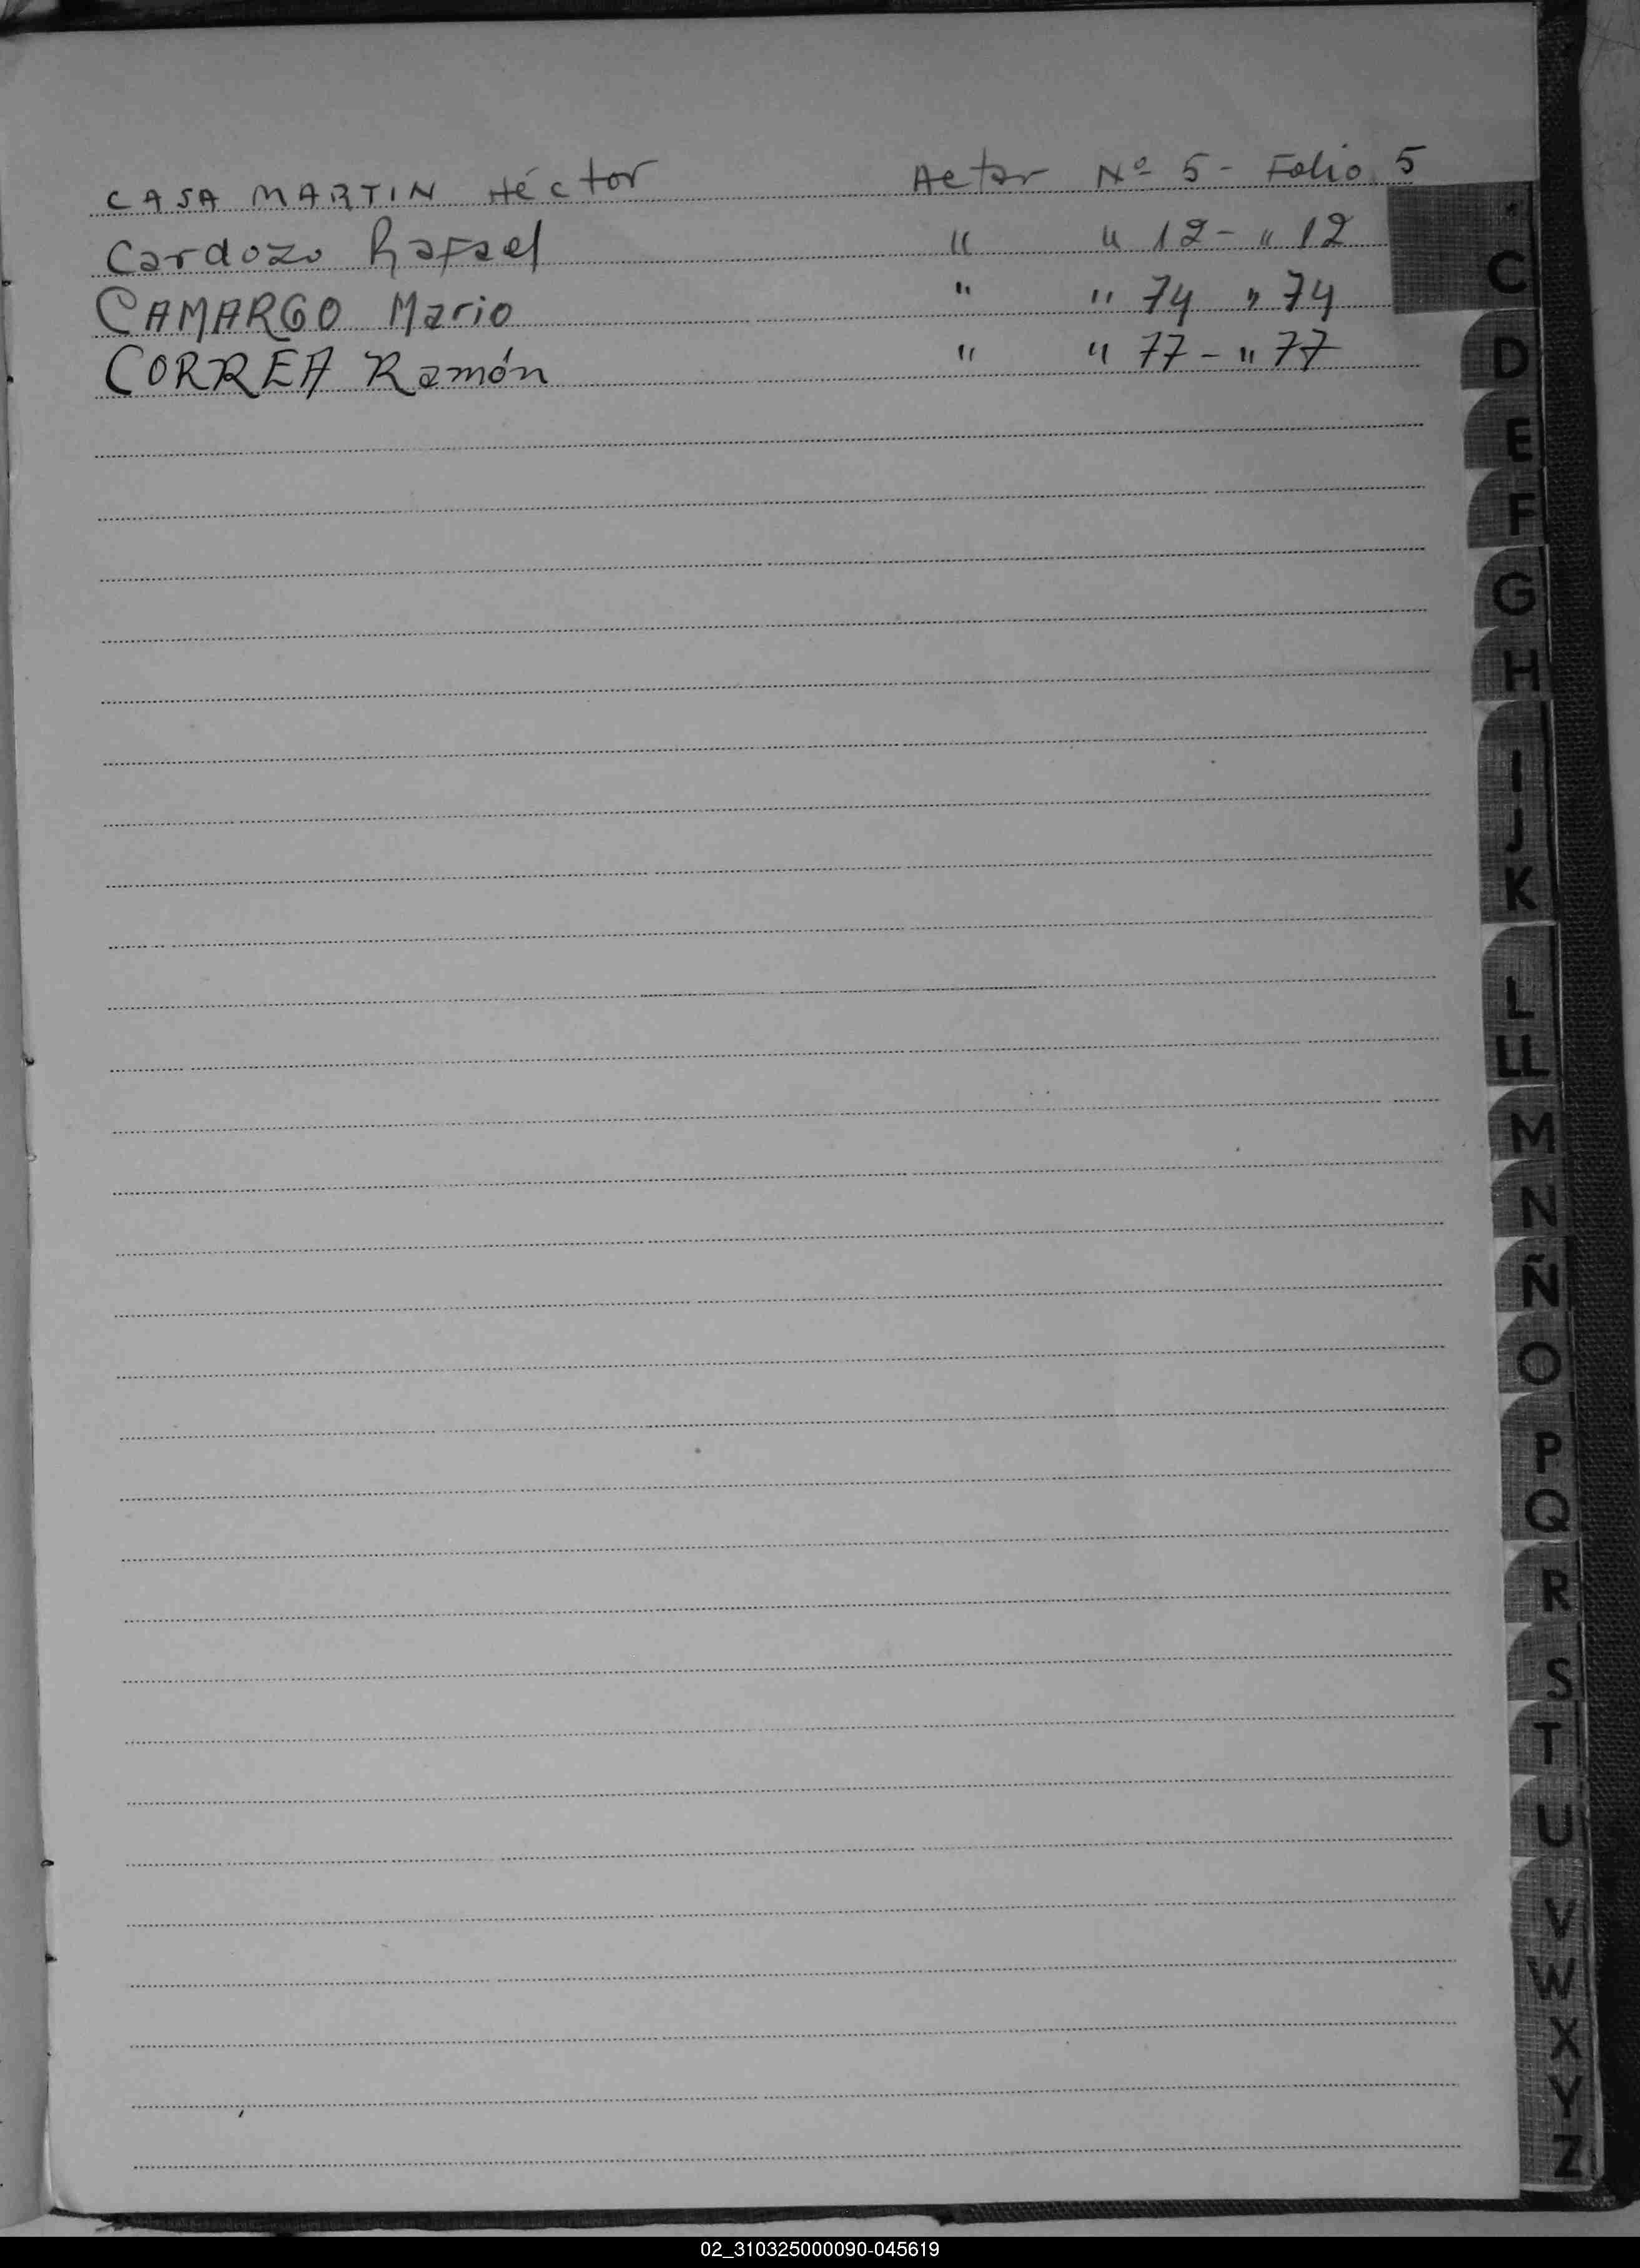 CASA MARTIN Héctor Actor Nº 5 - Folio 5
Cardozo Rafael " " 12 - " 12
CAMARGO Mario " " 74 " 74
CORREA Ramón " " 77 - " 77
C
D
E
F
G
H
I
J
K
L
LL
M
N
Ñ
O
P
Q
R
S
T
U
V
W
X
Y
Z
02_310325000090-045619